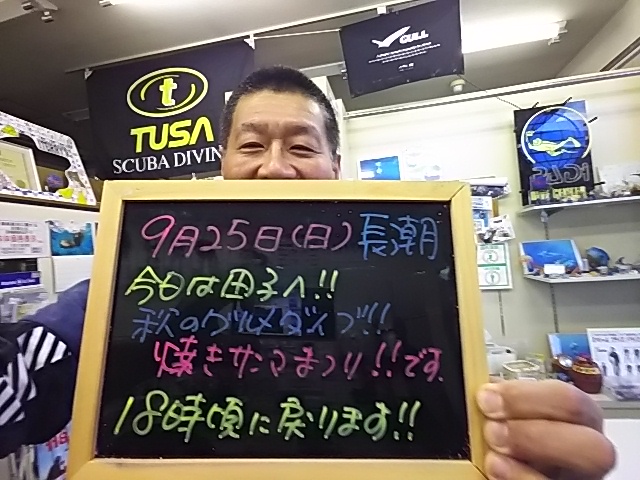 GULL
TUSA
SCUBA DIVIN
PADI
9月25日(日)長潮
今日は田子へ!!
秋のグルメダイブ!!
焼きサンマまつり!!です.
18時頃に戻ります!!